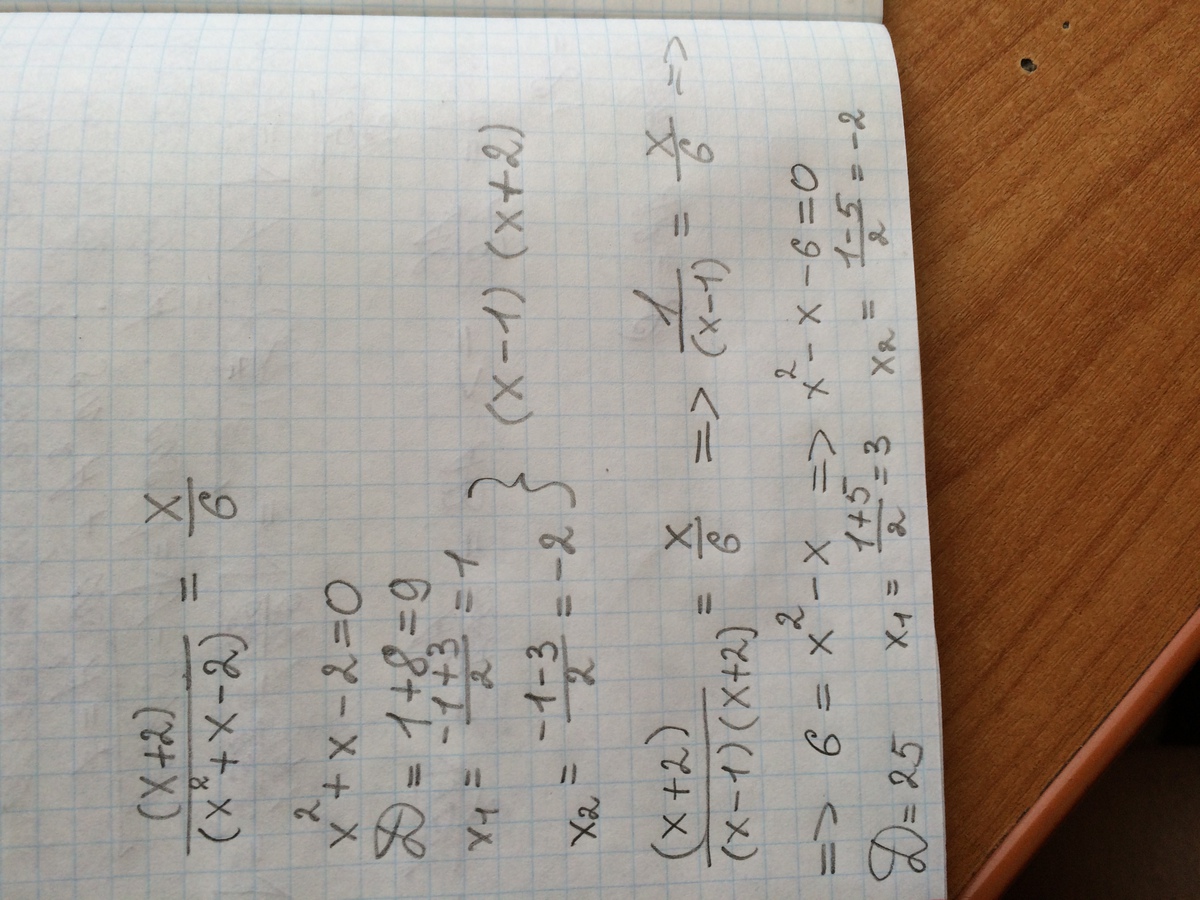 (x+2)/(x²+x-2) = x/6
x²+x-2=0
D=1+8=9
x₁ = (-1+3)/2 = 1
x₂ = (-1-3)/2 = -2 } (x-1)(x+2)
(x+2)/(x-1)(x+2) = x/6 => 1/(x-1) = x/6 =>
=> 6 = x²-x => x²-x-6=0
D=25 x₁ = (1+5)/2 = 3 x₂ = (1-5)/2 = -2